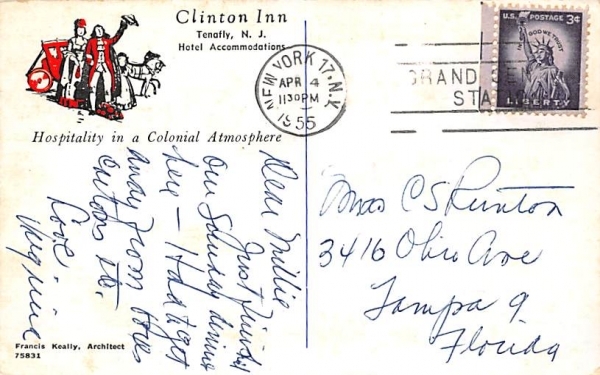 Clinton Inn
Tenafly, N. J.
Hotel Accommodations
Hospitality in a Colonial Atmosphere
Dear Millie
Just finished
our Sunday dinner
here — Had to get
away from
Love
Virginia
Francis Keally, Architect
75831
NEW YORK 17, N.Y.
APR 4
11 30 PM
1955
GRAND CEN
STA
U.S. POSTAGE 3¢
IN GOD WE TRUST
LIBERTY
C S Runton
3416 Ohio Ave
Tampa 9
Florida